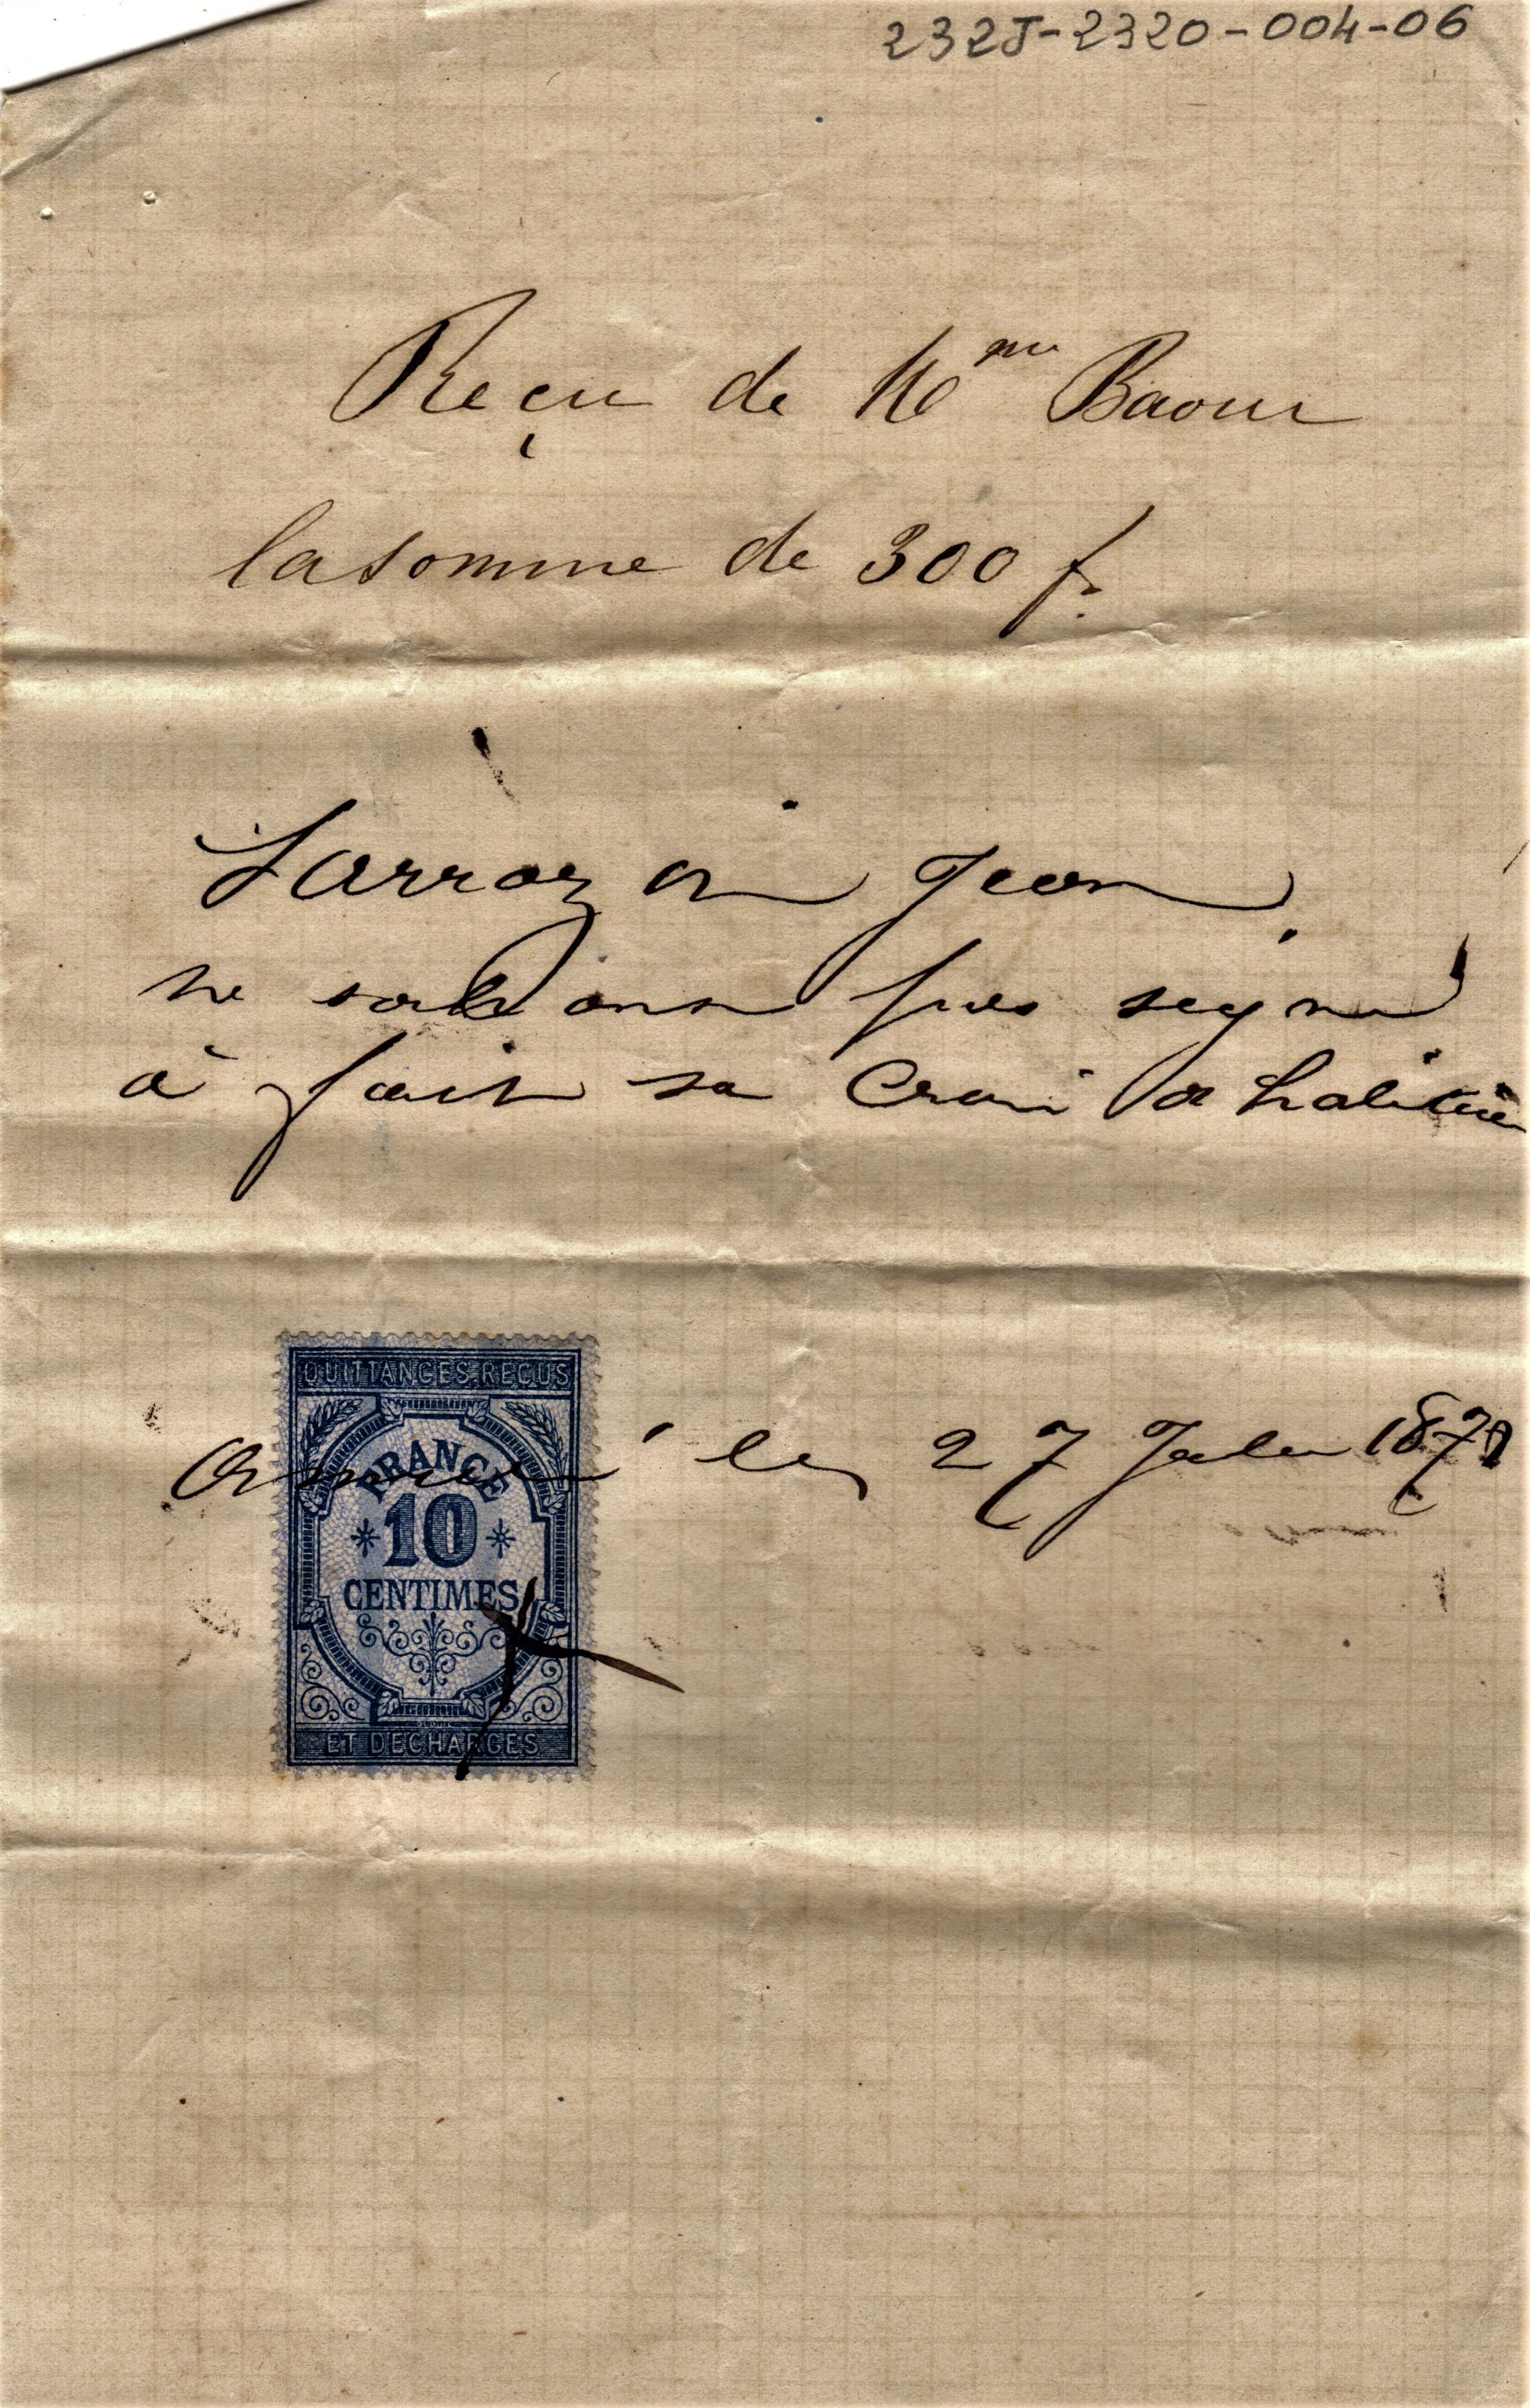 232J-2320-004-06
Reçu de Mme Baour
la somme de 300 f.
Larrozai Jean,
ne sachans pas segné
à fait sa Croi
QUITTANCES, REÇUS
FRANCE
10
CENTIMES
ET DECHARGES
le 27 187